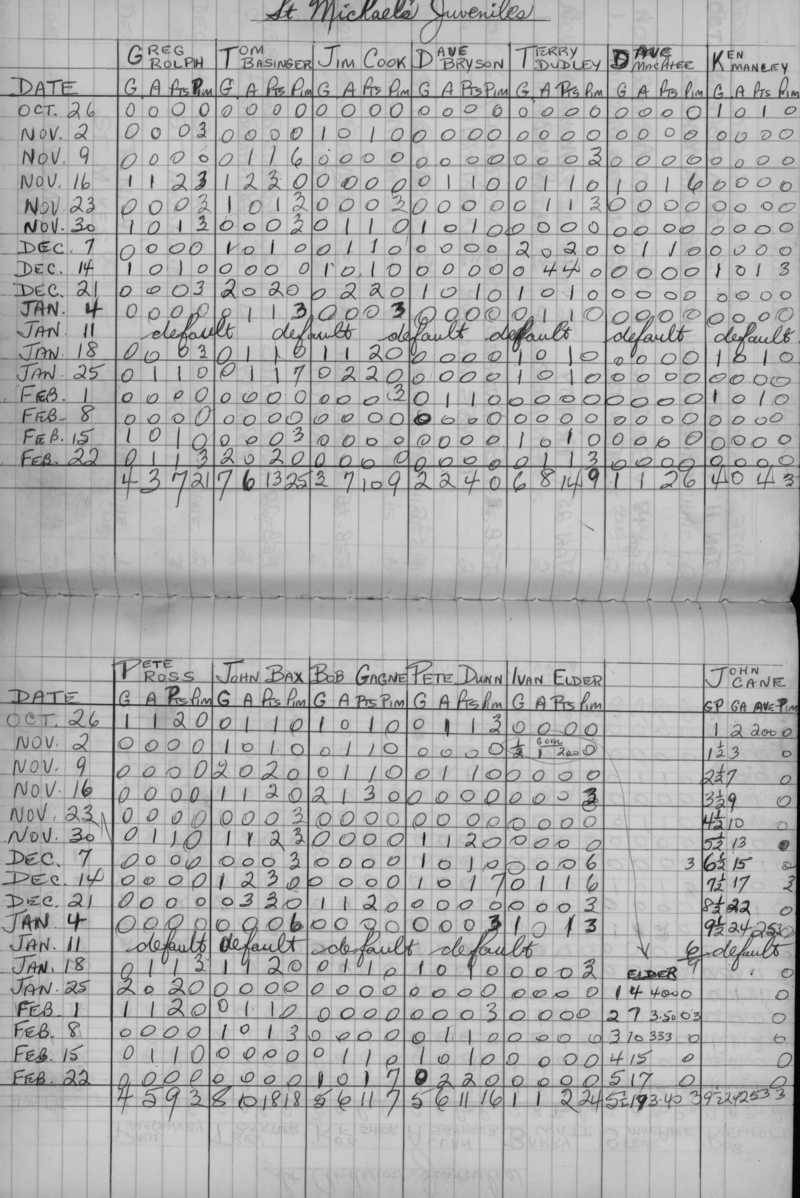 St Michaels Juveniles
GREG ROLPH TOM BASINGER JIM COOK DAVE BRYSON TERRY DUDLEY DAVE MACPHEE KEN MANLEY
DATE G A Pts Pim G A Pts Pim G A Pts Pim G A Pts Pim G A Pts Pim G A Pts Pim G A Pts Pim
OCT. 26 0 0 0 0 0 0 0 0 0 0 0 0 0 0 0 0 0 0 0 0 0 0 0 0 1 0 1 0
NOV. 2 0 0 0 3 0 0 0 0 1 0 1 0 0 0 0 0 0 0 0 0 0 0 0 0 0 0 0 0
NOV. 9 0 0 0 0 0 1 1 6 0 0 0 0 0 0 0 0 0 0 0 3 0 0 0 0 0 0 0 0
NOV. 16 1 1 2 3 1 2 3 0 0 0 0 0 0 1 1 0 0 1 1 0 1 0 1 6 0 0 0 0
NOV. 23 0 0 0 3 1 0 1 3 0 0 0 3 0 0 0 0 0 1 1 3 0 0 0 0 0 0 0 0
NOV. 30 1 0 1 3 0 0 0 3 0 1 1 0 1 0 1 0 0 0 0 0 0 0 0 0 0 0 0 0
DEC. 7 0 0 0 0 1 0 1 0 0 1 1 0 0 0 0 0 2 0 2 0 0 1 1 0 0 0 0 0
DEC. 14 1 0 1 0 0 0 0 0 1 0 1 0 0 0 0 0 0 4 4 0 0 0 0 0 1 0 1 3
DEC. 21 0 0 0 3 2 0 2 0 0 2 2 0 1 0 1 0 1 0 1 0 0 0 0 0 0 0 0 0
JAN. 4 0 0 0 0 0 1 1 3 0 0 0 3 0 0 0 0 0 1 1 0 0 0 0 0 0 0 0 0
JAN 11 default default default default default default
JAN. 18 0 0 0 3 0 1 1 0 1 1 2 0 0 0 0 0 1 0 1 0 0 0 0 0 1 0 1 0
JAN. 25 0 1 1 0 0 1 1 7 0 2 2 0 0 0 0 0 1 0 1 0 0 0 0 0 0 0 0 0
FEB. 1 0 0 0 0 0 0 0 0 0 0 0 3 0 1 1 0 0 0 0 0 0 0 0 0 1 0 1 0
FEB. 8 0 0 0 0 0 0 0 0 0 0 0 0 0 0 0 0 0 0 0 0 0 0 0 0 0 0 0 0
FEB. 15 1 0 1 0 0 0 0 3 0 0 0 0 0 0 0 0 1 0 1 0 0 0 0 0 0 0 0 0
FEB. 22 0 1 1 3 2 0 2 0 0 0 0 0 0 0 0 0 0 1 1 3 0 0 0 0 0 0 0 0
4 3 7 21 7 6 13 25 3 7 10 9 2 2 4 0 6 8 14 9 1 1 2 6 4 0 4 3
PETE ROSS JOHN BAX BOB GAGNE PETE DUNN IVAN ELDER JOHN CANE
DATE G A Pts Pim G A Pts Pim G A Pts Pim G A Pts Pim G A Pts Pim GP GA AVE Pim
OCT. 26 1 1 2 0 0 1 1 0 1 0 1 0 0 1 1 3 0 0 0 0 1 2 200 0
NOV. 2 0 0 0 0 1 0 1 0 0 1 1 0 0 0 0 0 ½ GOAL 1 200 0 1½ 3 0
NOV. 9 0 0 0 0 2 0 2 0 0 1 1 0 0 1 1 0 0 0 0 0 2½ 7 0
NOV. 16 0 0 0 0 1 1 2 0 2 1 3 0 0 0 0 0 0 0 0 3 3½ 9 0
NOV. 23 0 0 0 0 0 0 0 3 0 0 0 0 0 0 0 0 0 0 0 0 4½ 10 0
NOV. 30 0 1 1 0 1 1 2 3 0 0 0 0 1 1 2 0 0 0 0 0 5½ 13 0
DEC. 7 0 0 0 0 0 0 0 3 0 0 0 0 1 0 1 0 0 0 0 6 3 6½ 15 0
DEC. 14 0 0 0 0 1 2 3 0 0 0 0 0 1 0 1 7 0 1 1 6 7½ 17 3
DEC. 21 0 0 0 0 0 3 3 0 1 1 2 0 0 0 0 0 0 0 0 3 8½ 22 0
JAN. 4 0 0 0 0 0 0 0 6 0 0 0 0 0 0 0 3 1 0 1 3 9½ 24 253 0
JAN. 11 default default default default default
JAN. 18 0 1 1 3 1 1 2 0 0 1 1 0 1 0 1 0 0 0 0 3 ELDER 0
JAN. 25 2 0 2 0 0 0 0 0 0 0 0 0 0 0 0 0 0 0 0 0 1 4 400 0 0
FEB 1 1 1 2 0 0 1 1 0 0 0 0 0 0 0 0 3 0 0 0 0 2 7 3.50 3 0
FEB. 8 0 0 0 0 1 0 1 3 0 0 0 0 0 1 1 0 0 0 0 0 3 10 333 0 0
FEB. 15 0 1 1 0 0 0 0 0 0 1 1 0 1 0 1 0 0 0 0 0 4 15 0 0
FEB. 22 0 0 0 0 0 0 0 0 1 0 1 7 0 2 2 0 0 0 0 0 5 17 0 0
4 5 9 3 8 10 18 18 5 6 11 7 5 6 11 16 1 1 2 24 5½ 19 3.40 3 9½ 24 253 3